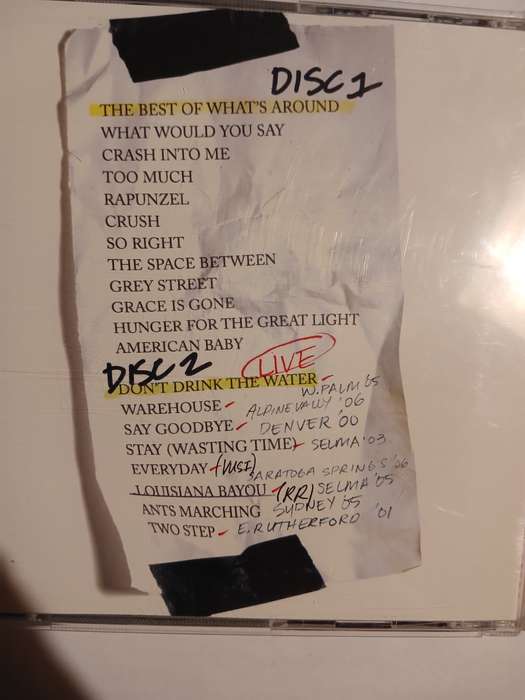 DISC 1
THE BEST OF WHAT'S AROUND
WHAT WOULD YOU SAY
CRASH INTO ME
TOO MUCH
RAPUNZEL
CRUSH
SO RIGHT
THE SPACE BETWEEN
GREY STREET
GRACE IS GONE
HUNGER FOR THE GREAT LIGHT
AMERICAN BABY
DISC 2 LIVE
DON'T DRINK THE WATER - W. PALM '05
WAREHOUSE - ALPINE VALLY '06
SAY GOODBYE - DENVER '00
STAY (WASTING TIME) - SELMA '03
EVERYDAY - (WSI) SARATOGA SPRINGS '06
LOUISIANA BAYOU - (RR) SELMA '05
ANTS MARCHING SYDNEY '05
TWO STEP - E. RUTHERFORD '01